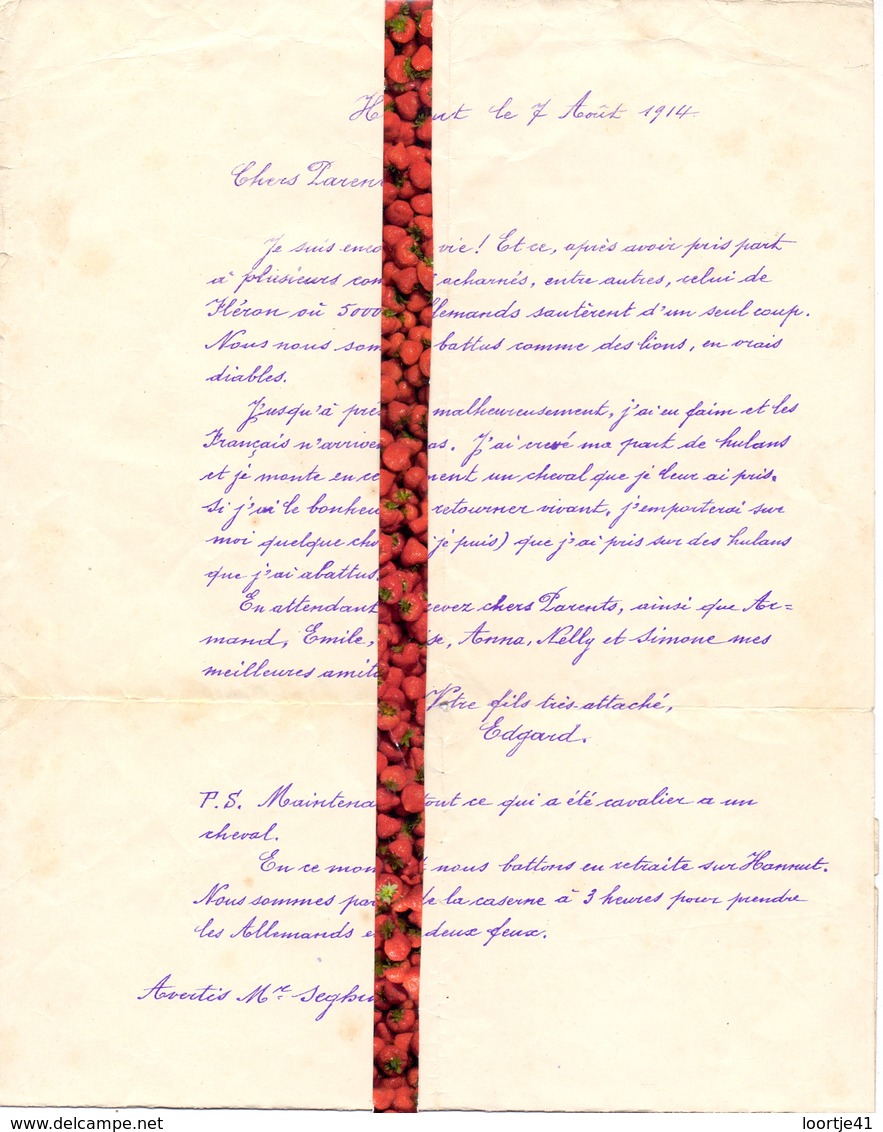 le 7 Août 1914
Chers
Je suis vie! Et ce, après avoir pris part
à plusieurs acharnés, entre autres, celui de
Fléron où 5000 sautèrent d'un seul coup.
Nous nous battus comme des lions, en vrais
diables.
Jusqu'à malheureusement, j'ai eu faim et les
Français J'ai crevé ma part de hulans
et je monte en un cheval que je leur ai pris.
Si j'ai le retourner vivant, j'emporterai sur
moi quelque je puis) que j'ai pris sur des hulans
que j'ai abattus.
En attendant chers Parents, ainsi que Ar=
mand, Emile, Anna, Nelly et Simone mes
meilleures
Votre fils très-attaché,
Edgard.
P.S. tout ce qui a été cavalier a un
cheval.
En ce nous battons en retraite sur Hannut.
Nous sommes de la caserne à 3 heures pour prendre
les Allemands deux feux.
Avertis Mr
loortje41